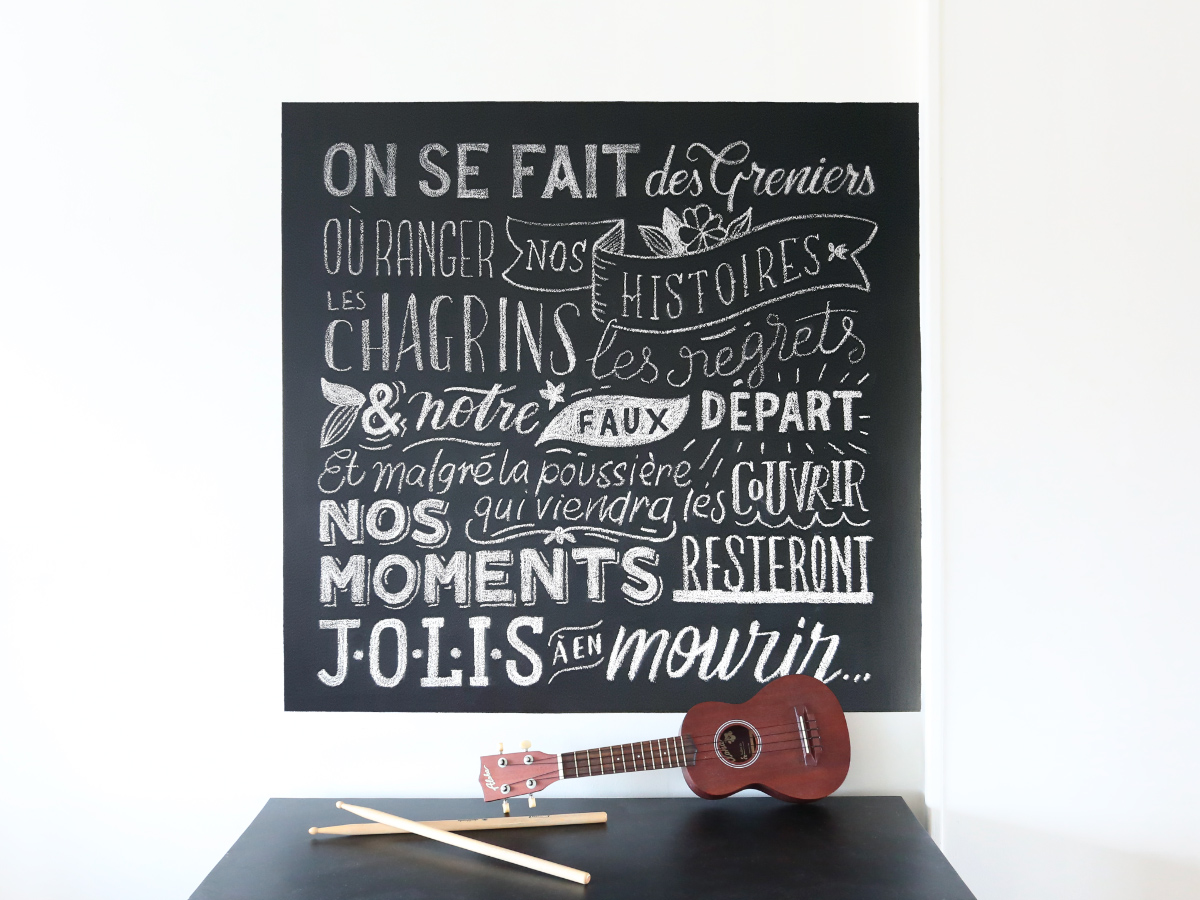 ON SE FAIT des Greniers
OÙ RANGER NOS HISTOIRES
LES CHAGRINS les regrets
& notre FAUX DÉPART
Et malgré la poussière
qui viendra les COUVRIR
NOS MOMENTS RESTERONT
JOLIS À EN mourir...